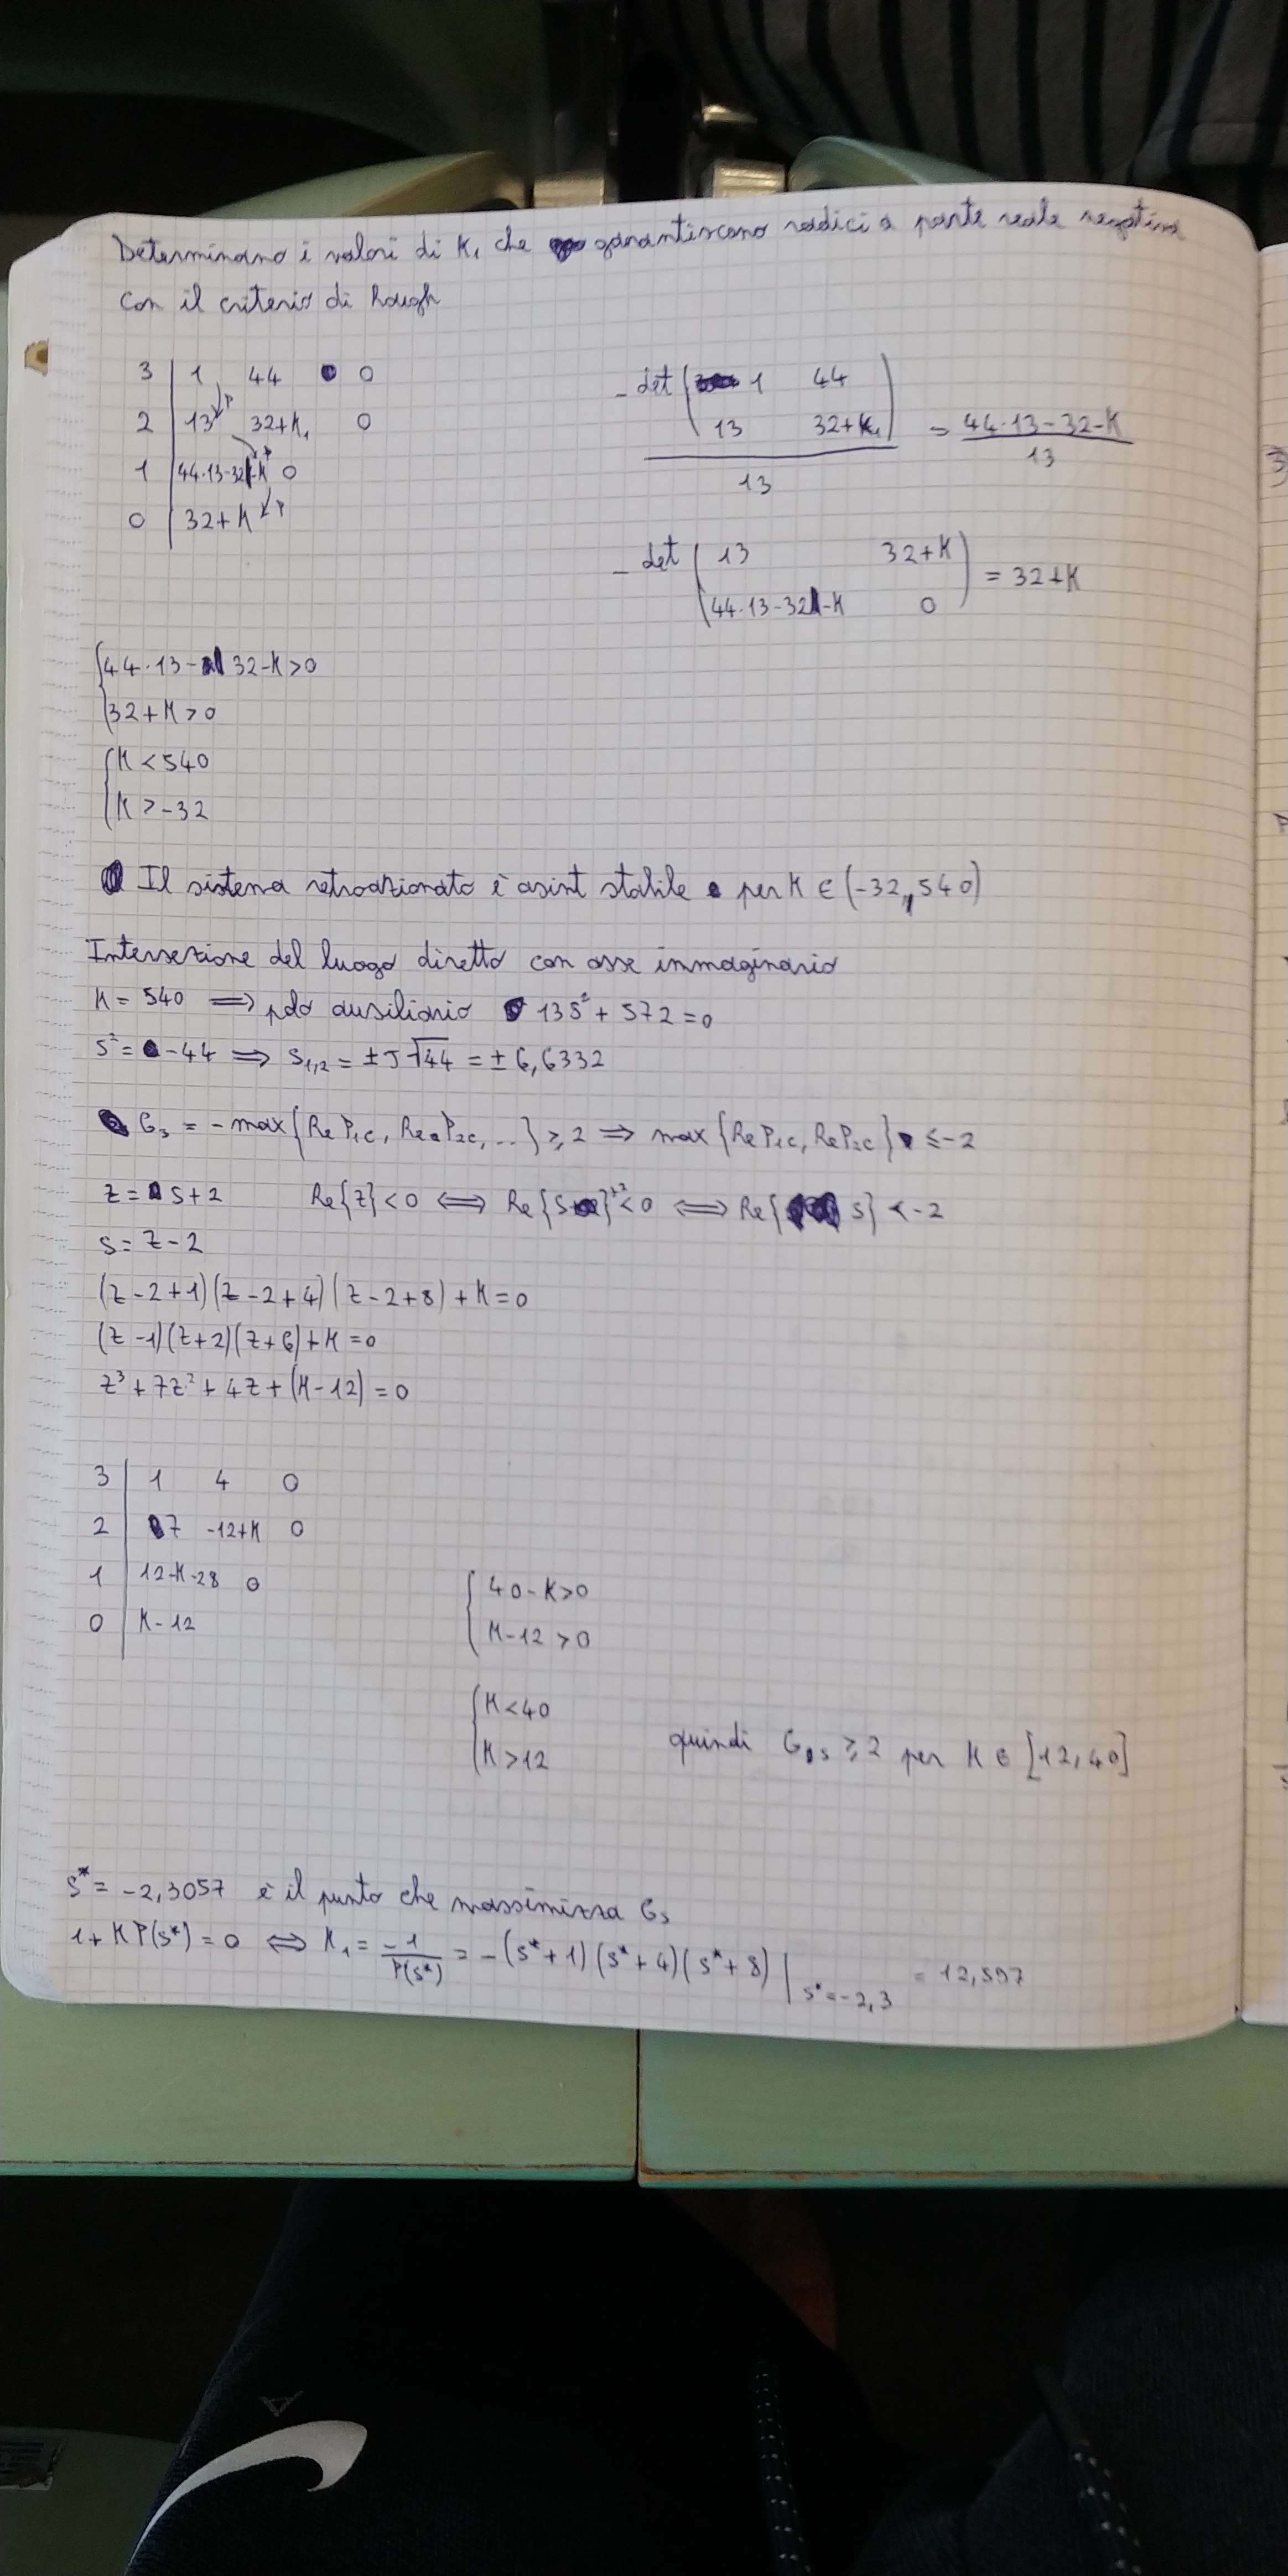 Determinano i valori di K₁ che garantiscono radici a parte reale negativa
con il criterio di Rough
3 | 1 44 0
2 | 13 32+K₁ 0
1 | 44·13-32-K 0
0 | 32+K
- det ( 1 44
13 32+K₁ ) / 13 = (44·13-32-K) / 13
- det ( 13 32+K
44·13-32-K 0 ) = 32+K
{ 44·13-32-K>0
32+K>0
{ K<540
K>-32
Il sistema retroazionato è asint stabile per K ∈ (-32, 540)
Intersezione del luogo diretto con asse immaginario
K = 540 ⟹ pdo ausiliario 13S²+572=0
S²= -44 ⟹ S₁,₂ = ±J√44 = ±6,6332
Gₛ = -max{Re P₁c, Re P₂c, ..} ≥ 2 ⟹ max{Re P₁c, Re P₂c} ≤ -2
z = s+2 Re{z}<0 ⟺ Re{s+2}<0 ⟺ Re{s} < -2
s = z-2
(z-2+1)(z-2+4)(z-2+8)+K=0
(z-1)(z+2)(z+6)+K=0
z³+7z²+4z+(K-12)=0
3 | 1 4 0
2 | 7 -12+K 0
1 | 12-K-28 0
0 | K-12
{ 40-K>0
K-12>0
{ K<40
K>12
quindi Gₛ ≥ 2 per K ∈ [12,40]
s* = -2,3057 è il punto che massimizza Gₛ
1+KP(s*)=0 ⟺ K₁ = -1/P(s*) = -(s*+1)(s*+4)(s*+8) | s*=-2,3 = 12,597